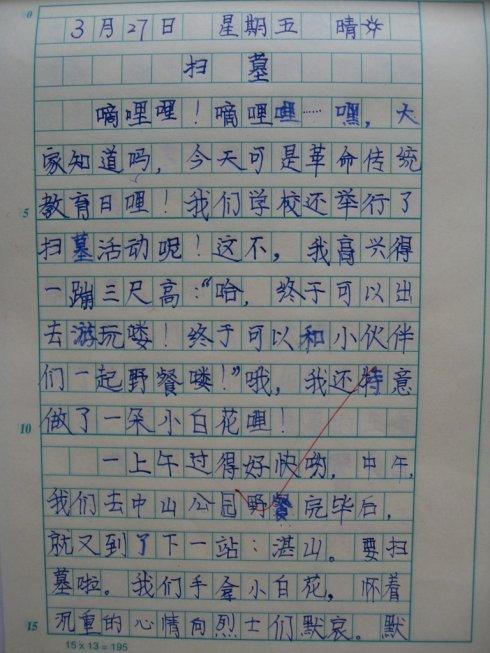 0
3月27日 星期五 晴
扫 墓
嘀哩哩！嘀哩哩……嘿，大
家知道吗，今天可是革命传统
5 教育日哩！我们学校还举行了
扫墓活动呢！这不，我高兴得
一蹦三尺高：“哈，终于可以出
去游玩喽！终于可以和小伙伴
们一起野餐喽！”哦，我还特意
10 做了一朵小白花哩！
一上午过得好快哟，中午，
我们去中山公园野餐完毕后，
就又到了下一站：湛山。要扫
墓啦。我们手拿小白花，怀着
15 沉重的心情向烈士们默哀。默
15×13=195